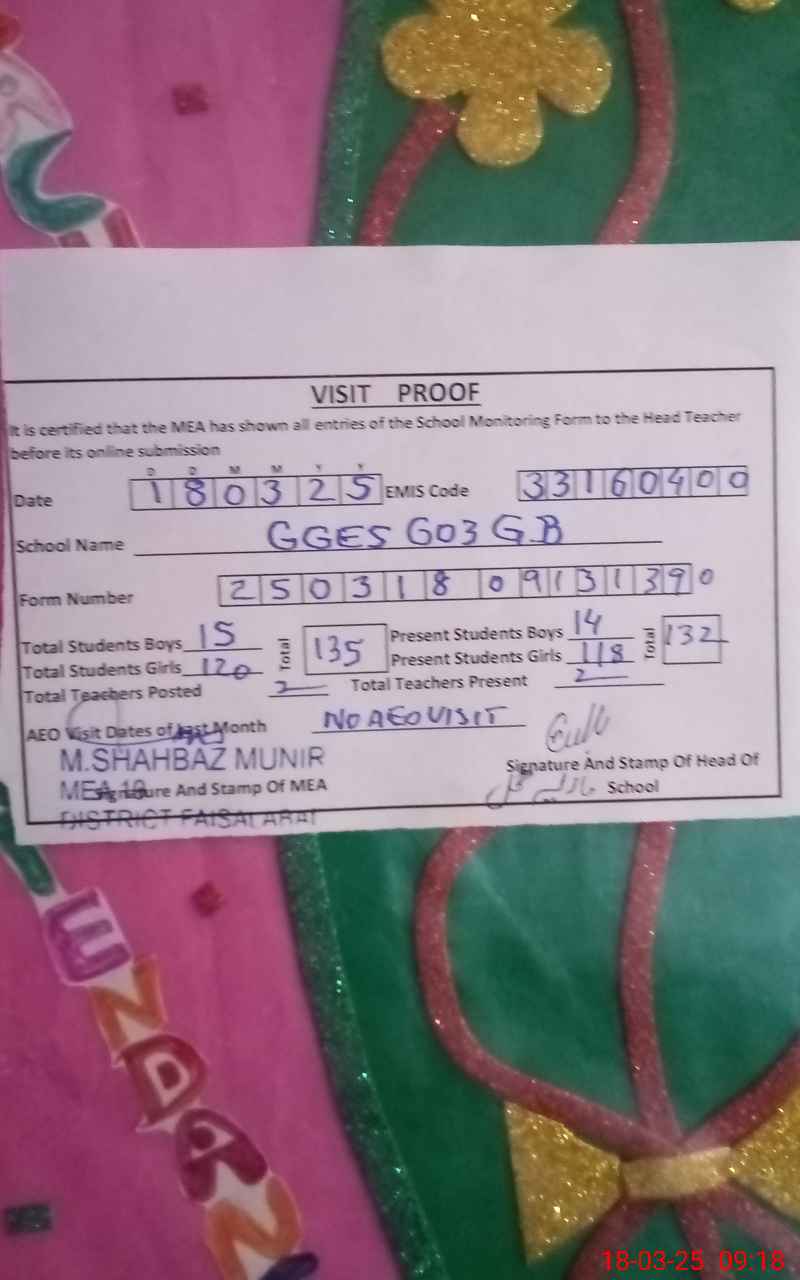 VISIT PROOF
It is certified that the MEA has shown all entries of the School Monitoring Form to the Head Teacher
before its online submission
D D M M Y Y
Date 180325 EMIS Code 33160400
School Name GGES 603 G.B
Form Number 250318 09131390
Total Students Boys 15 Total 135 Present Students Boys 14 Total 132
Total Students Girls 120 Present Students Girls 118
Total Teachers Posted 2 Total Teachers Present 2
AEO Visit Dates of last Month NO AEO VISIT
M.SHAHBAZ MUNIR
Signature And Stamp Of Head Of
MEA
Signature And Stamp Of MEA
School
DISTRICT FAISALABAD
ENDAN
18-03-25 09:18